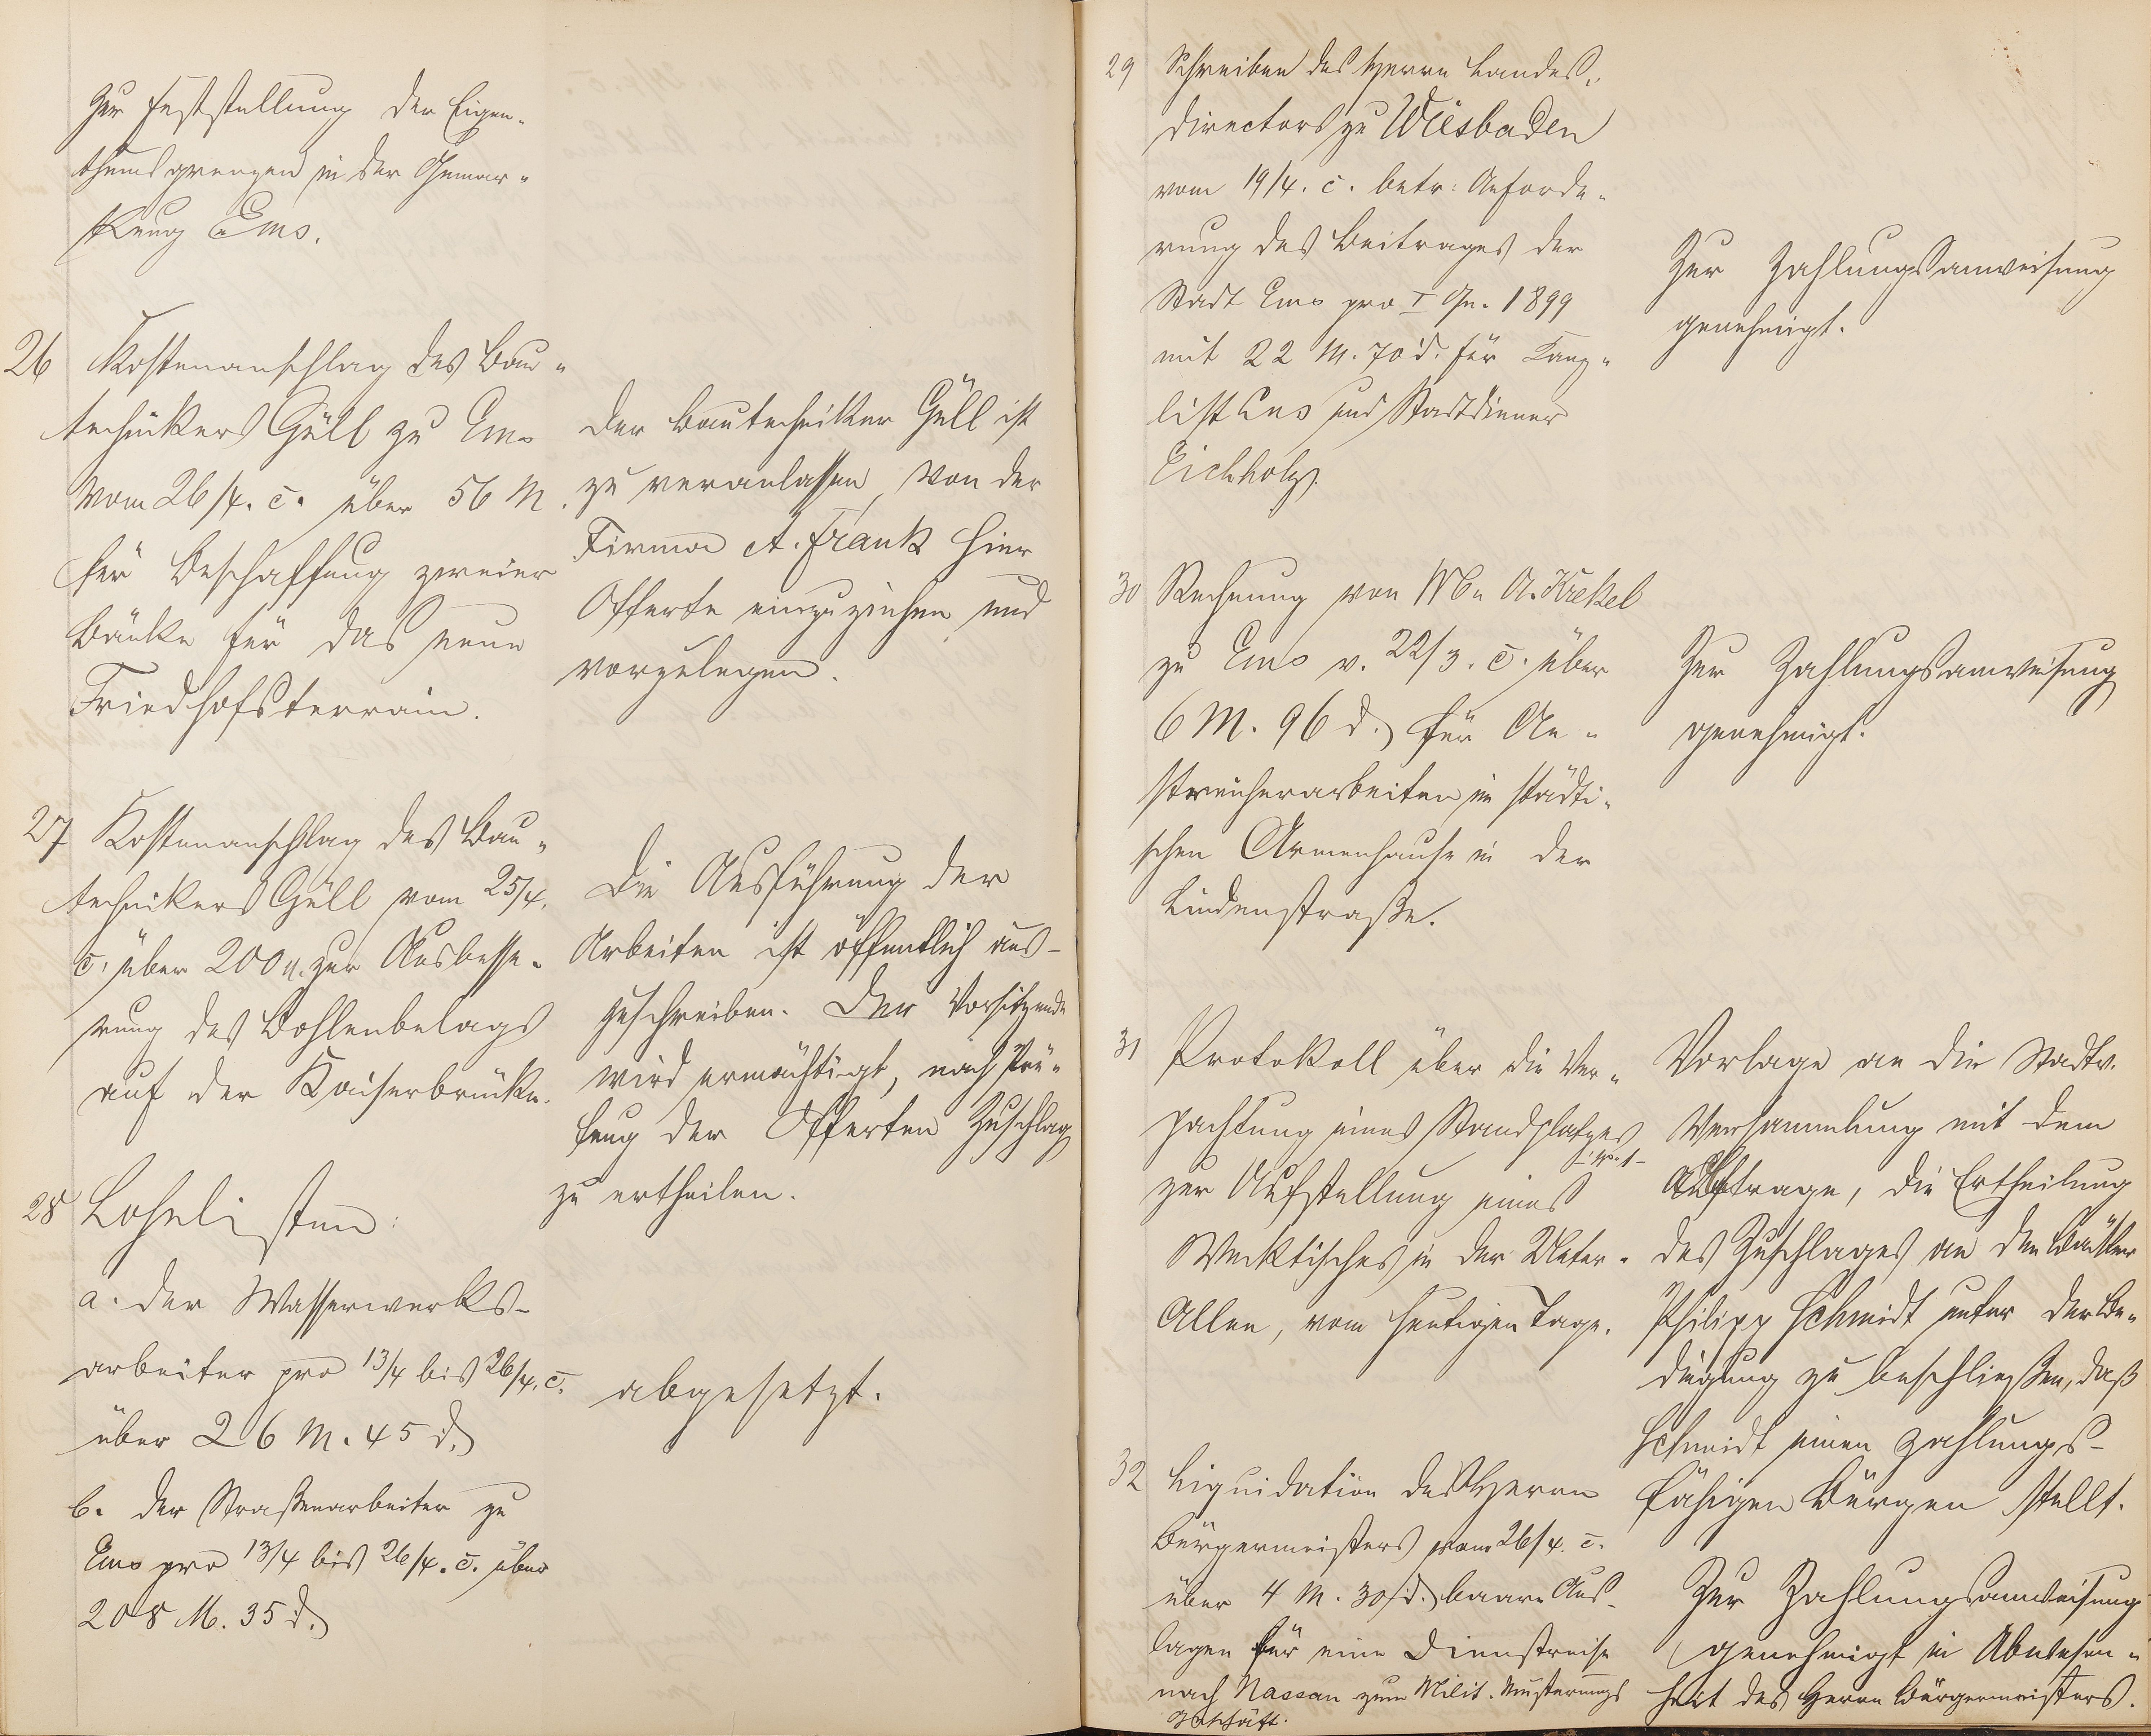 zur Feststellung der Eigen-
thumsgrenzen in der Gemar-
kung Ems.
26 Kostenanschlag des Bau-
technikers Güll zu Ems
vom 26/4. c. über 56 M.
für Beschaffung zweier
Bänke für das neue
Friedhofsterrain.
Der Bautechniker Güll ist
zu veranlassen, von der
Firma A. Frank hier
Offerte einzuziehen und
vorzulegen.
27 Kostenanschlag des Bau-
technikers Güll vom 25/4.
c. über 200 M. zur Ausbesse-
rung des Bohlenbelags
auf der Kaiserbrücke.
Die Ausführung der
Arbeiten ist öffentlich aus-
zuschreiben. Der Vorsitzende
wird ermächtigt, nach Prü-
fung der Offerten Zuschlag
zu ertheilen.
28 Lohnlisten:
a. der Wasserwerks-
arbeiter pro 13/4 bis 26/4. c.
über 26 M. 45 d.
b. der Straßenarbeiter zu
Ems pro 13/4 bis 26/4. c. über
208 M. 35 d.
abgesetzt.
29 Schreiben des Herrn Landes-
directors zu Wiesbaden
vom 19/4. c. betr: Anforde-
rung des Beitrages der
Stadt Ems pro I Qu. 1899
mit 22 M. 70 d. für Kanz-
list und Stadtdiener
Eichholz.
Zur Zahlungsanweisung
genehmigt.
30 Rechnung von A. Krekel
zu Ems v. 22/3. c. über
6 M. 96 d. für An-
streicherarbeiten im städti-
schen Armenhause in der
Lindenstraße.
Zur Zahlungsanweisung
genehmigt.
31 Protokoll über die Ver-
pachtung eines Standplatzes
zur Aufstellung eines
Wecktisches in der Unter-
Allee, vom heutigen Tage.
Vorlage an die Stadtv.
Versammlung mit dem
Antrage, die Ertheilung
des Zuschlages an den Bäcker
Philipp Schmidt unter der Be-
dingung zu beschließen, daß
Schmidt einen zahlungs-
fähigen Bürgen stellt.
32 Liquidation des Herrn
Bürgermeisters vom 26/4. c.
über 4 M. 30 d. baare Aus-
lagen für eine Dienstreise
nach Nassau zum Milit. Musterungs
Geschäft.
Zur Zahlungsanweisung
genehmigt in Abwesen-
heit des Herrn Bürgermeisters.